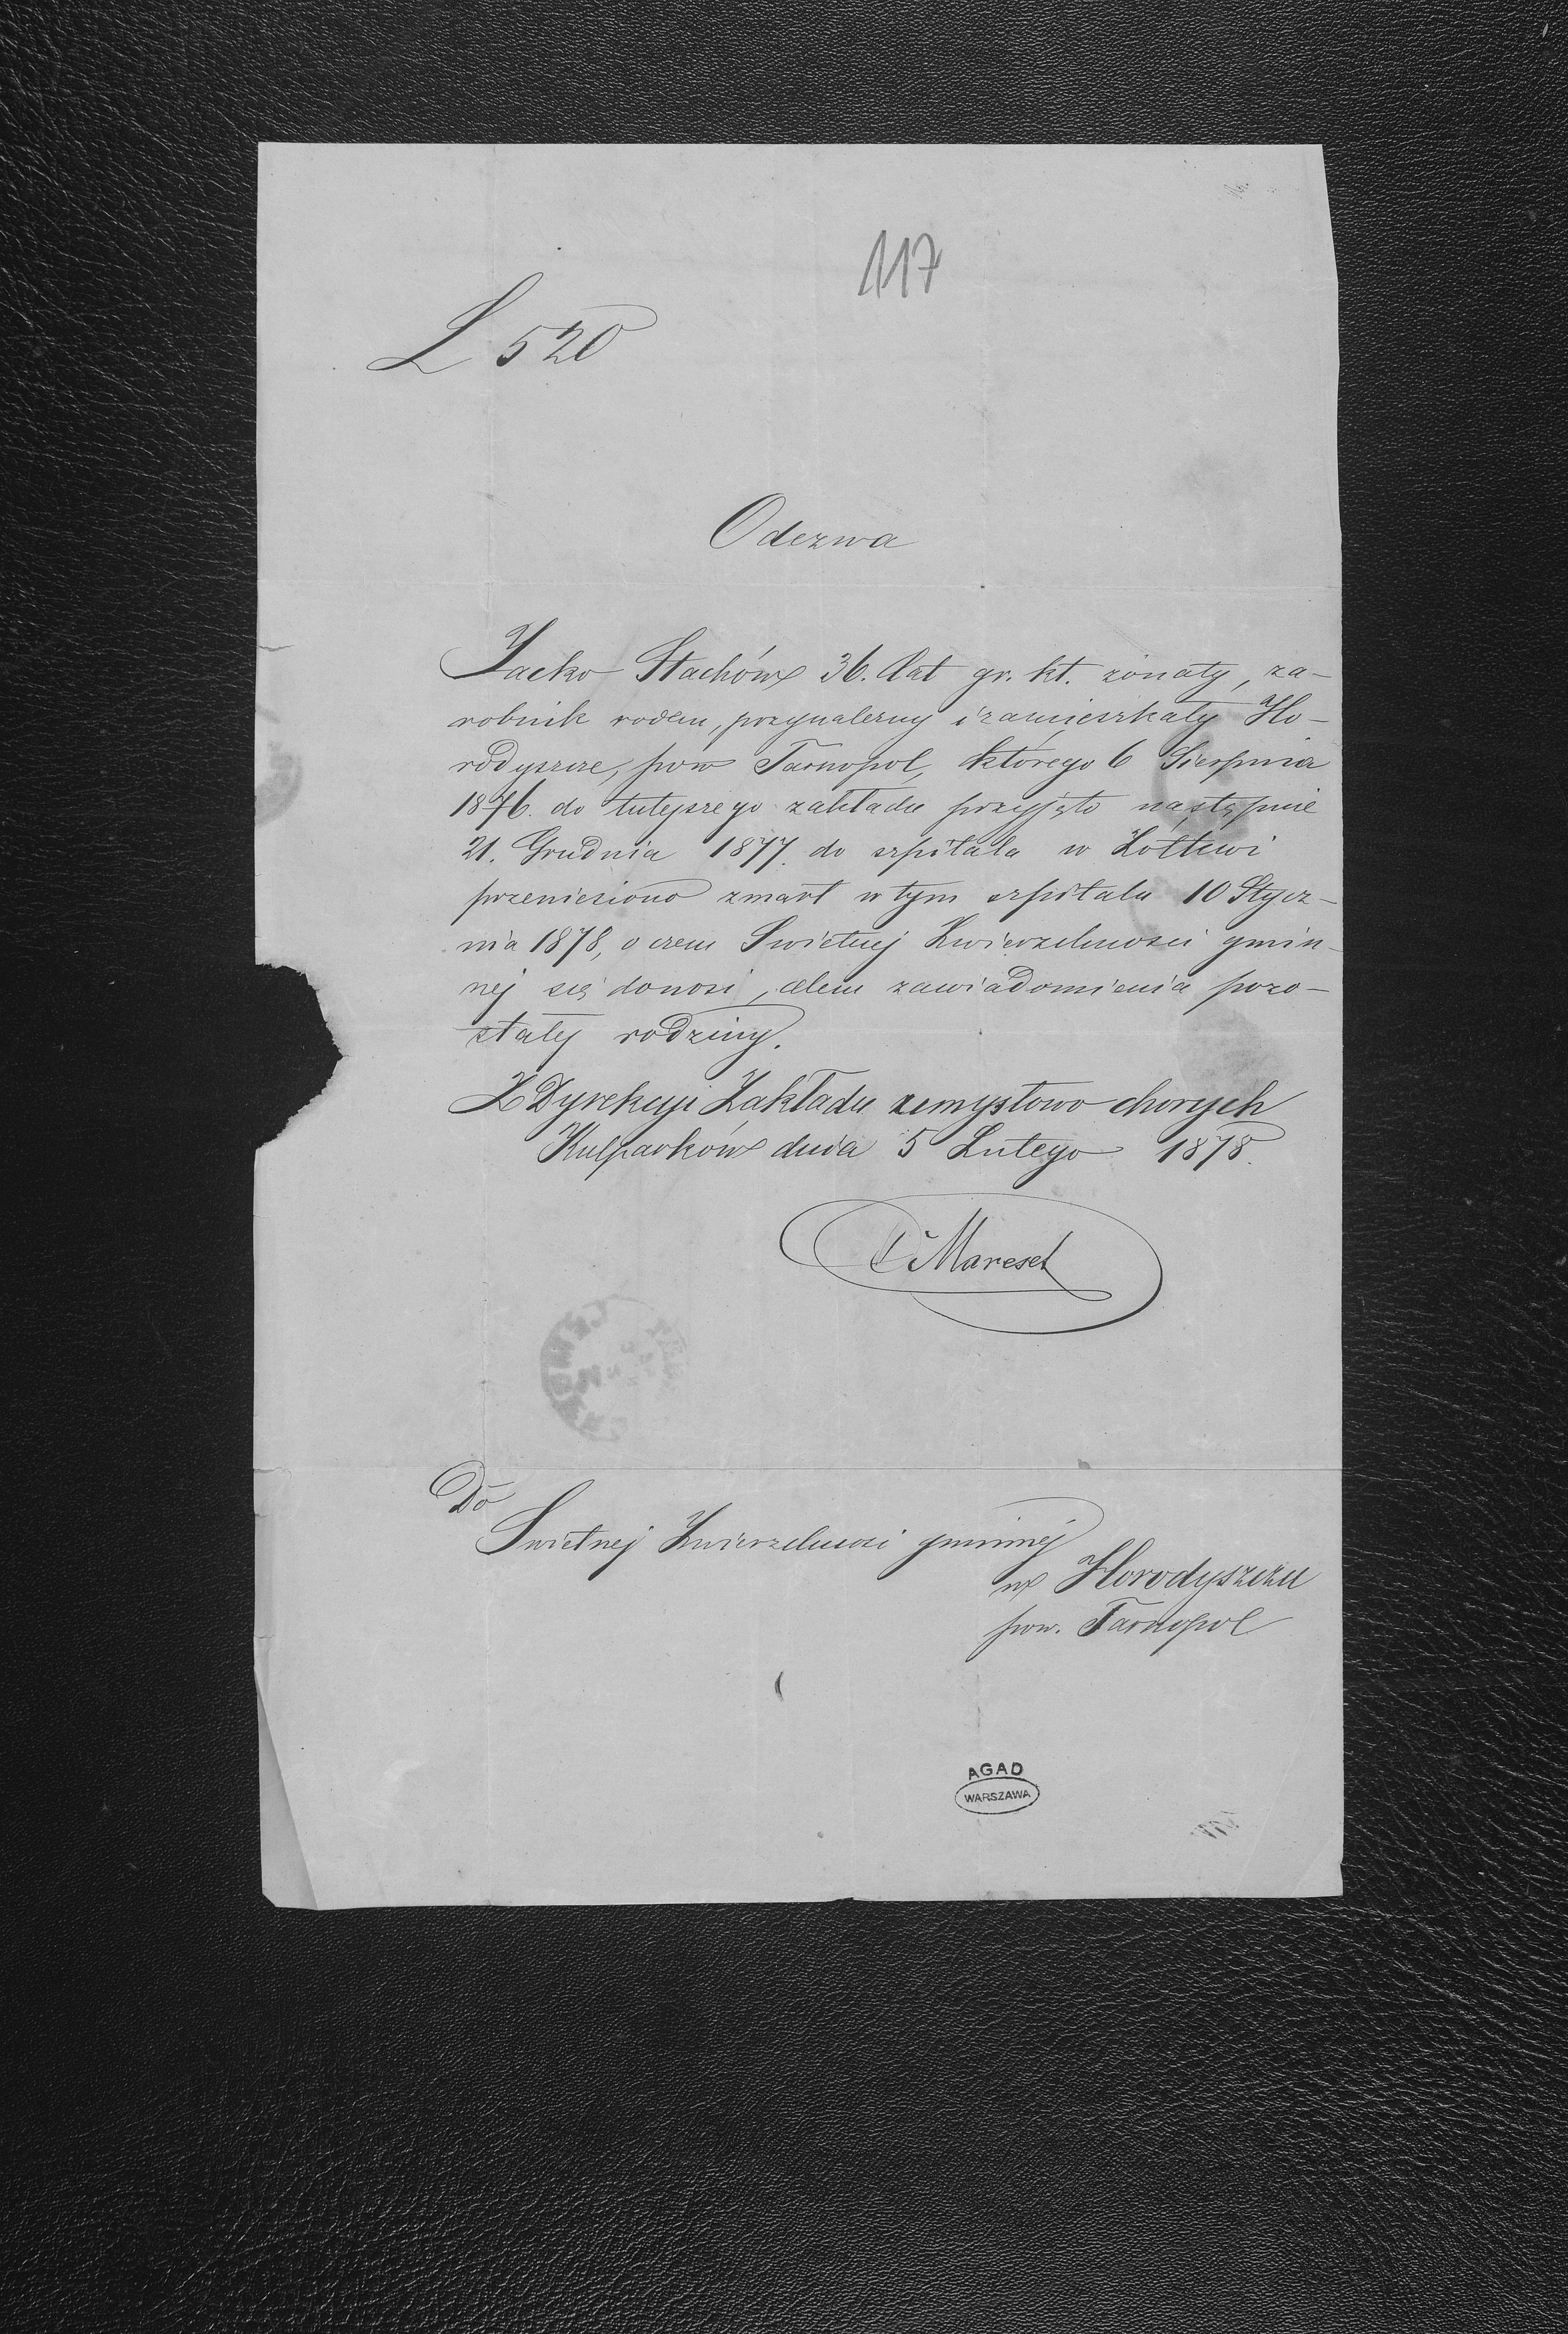 117
L 520
Odezwa
Jacko Stachów 36. lat gr. kt. żonaty, za-
robnik rodem, przynależny i zamieszkały Ho-
rodyszcze, pow Tarnopol, którego 6 Sierpnia
1876. do tutejszego zakładu przyjęto następnie
21. Grudnia 1877. do szpitala w Żółkwi
przeniesiono zmarł w tym szpitalu 10 Stycz-
nia 1878, o czem Swietnej Zwierzchnosci gmin-
nej się donosi, celem zawiadomienia pozo-
stałej rodziny.
Z Dyrekcyi Zakładu umysłowo chorych
Kulparków dnia 5 Lutego 1878.
Do
Swietnej Zwierzchnosci gminnej
w Horodyszczu
pow. Tarnopol
AGAD
WARSZAWA